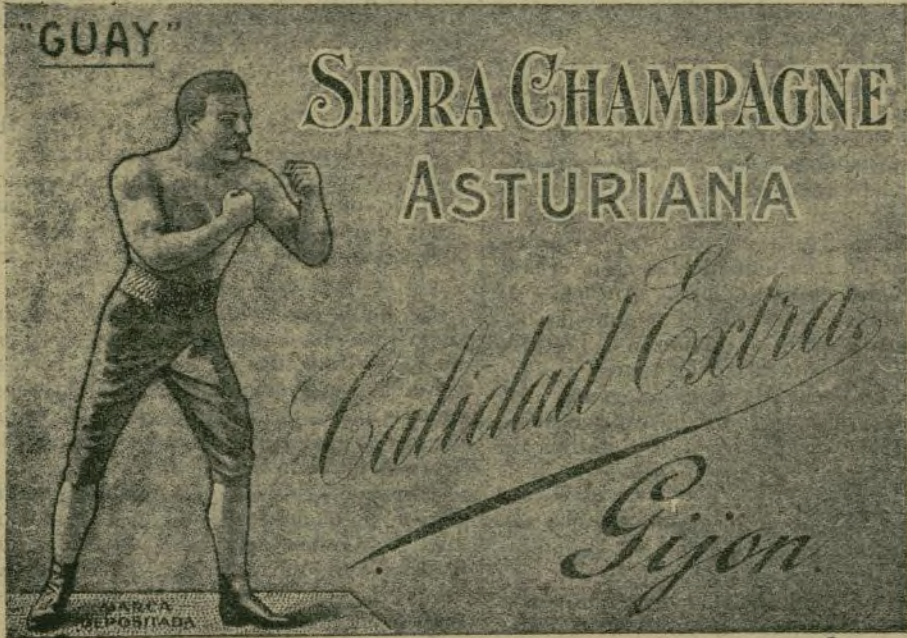 "GUAY"
SIDRA CHAMPAGNE
ASTURIANA
Calidad Extra
Gijón.
MARCA
DEPOSITADA